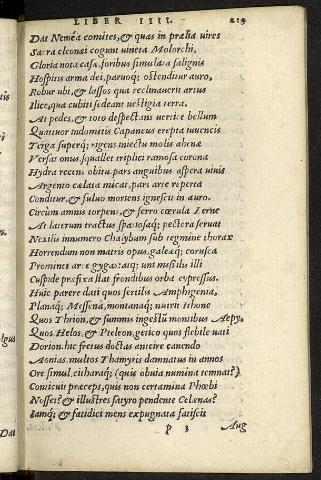 LIBER IIII. 219
Dat Nemea comites, & quas in prælia uires
Sacra cleonæi cogunt uineta Molorchi,
Gloria nota casæ, foribus simulata salignis
Hospitis arma dei, paruoq; ostenditur auro,
Robur ubi, & lassos qua reclinauerit artus
Ilice, qua cubiti sedeant uestigia terra.
At pedes, & toto despectans uertice bellum
Quattuor indomitis Capaneus erepta iuuencis
Terga superq; rigens iniectu molis ahenæ
Versat onus, squallet triplici ramosa corona
Hydra recens obitu, pars anguibus aspera uiuis
Argento cælata micat, pars arte reperta
Conditur, & fuluo mortens ignescit in auro.
Circum amnis torpens, & ferro cœrula Lerne
At laterum tractus spatiosaq; pectora seruat
Nexilis innumero Chalybum sub tegmine thorax
Horrendum non matris opus, galeæq; corusca
Prominet arce gygas: atq; uni missilis illi
Cuspide præfixa stat frondibus orba cypressus.
Huic parere dati quos fertilis Amphigenia,
Planaq; Messena, montanaq; nutrit Ithone
Quos Thrion, & summis ingestū montibus Aepy,
Quos Helos, & Pteleon, getico quos flebile uati
Dorion. hic fretus doctas anteire canendo
Aonias. multos Thamyris damnatus in annos
Ore simul, citharaq; (quis obuia numina temnat?)
Conticuit præceps, quis non certamina Phœbi
Nosset? & illustres satyro pendente Celænas?
Iamq; & fatidici mens expugnata fatiscit
p 3 Aug